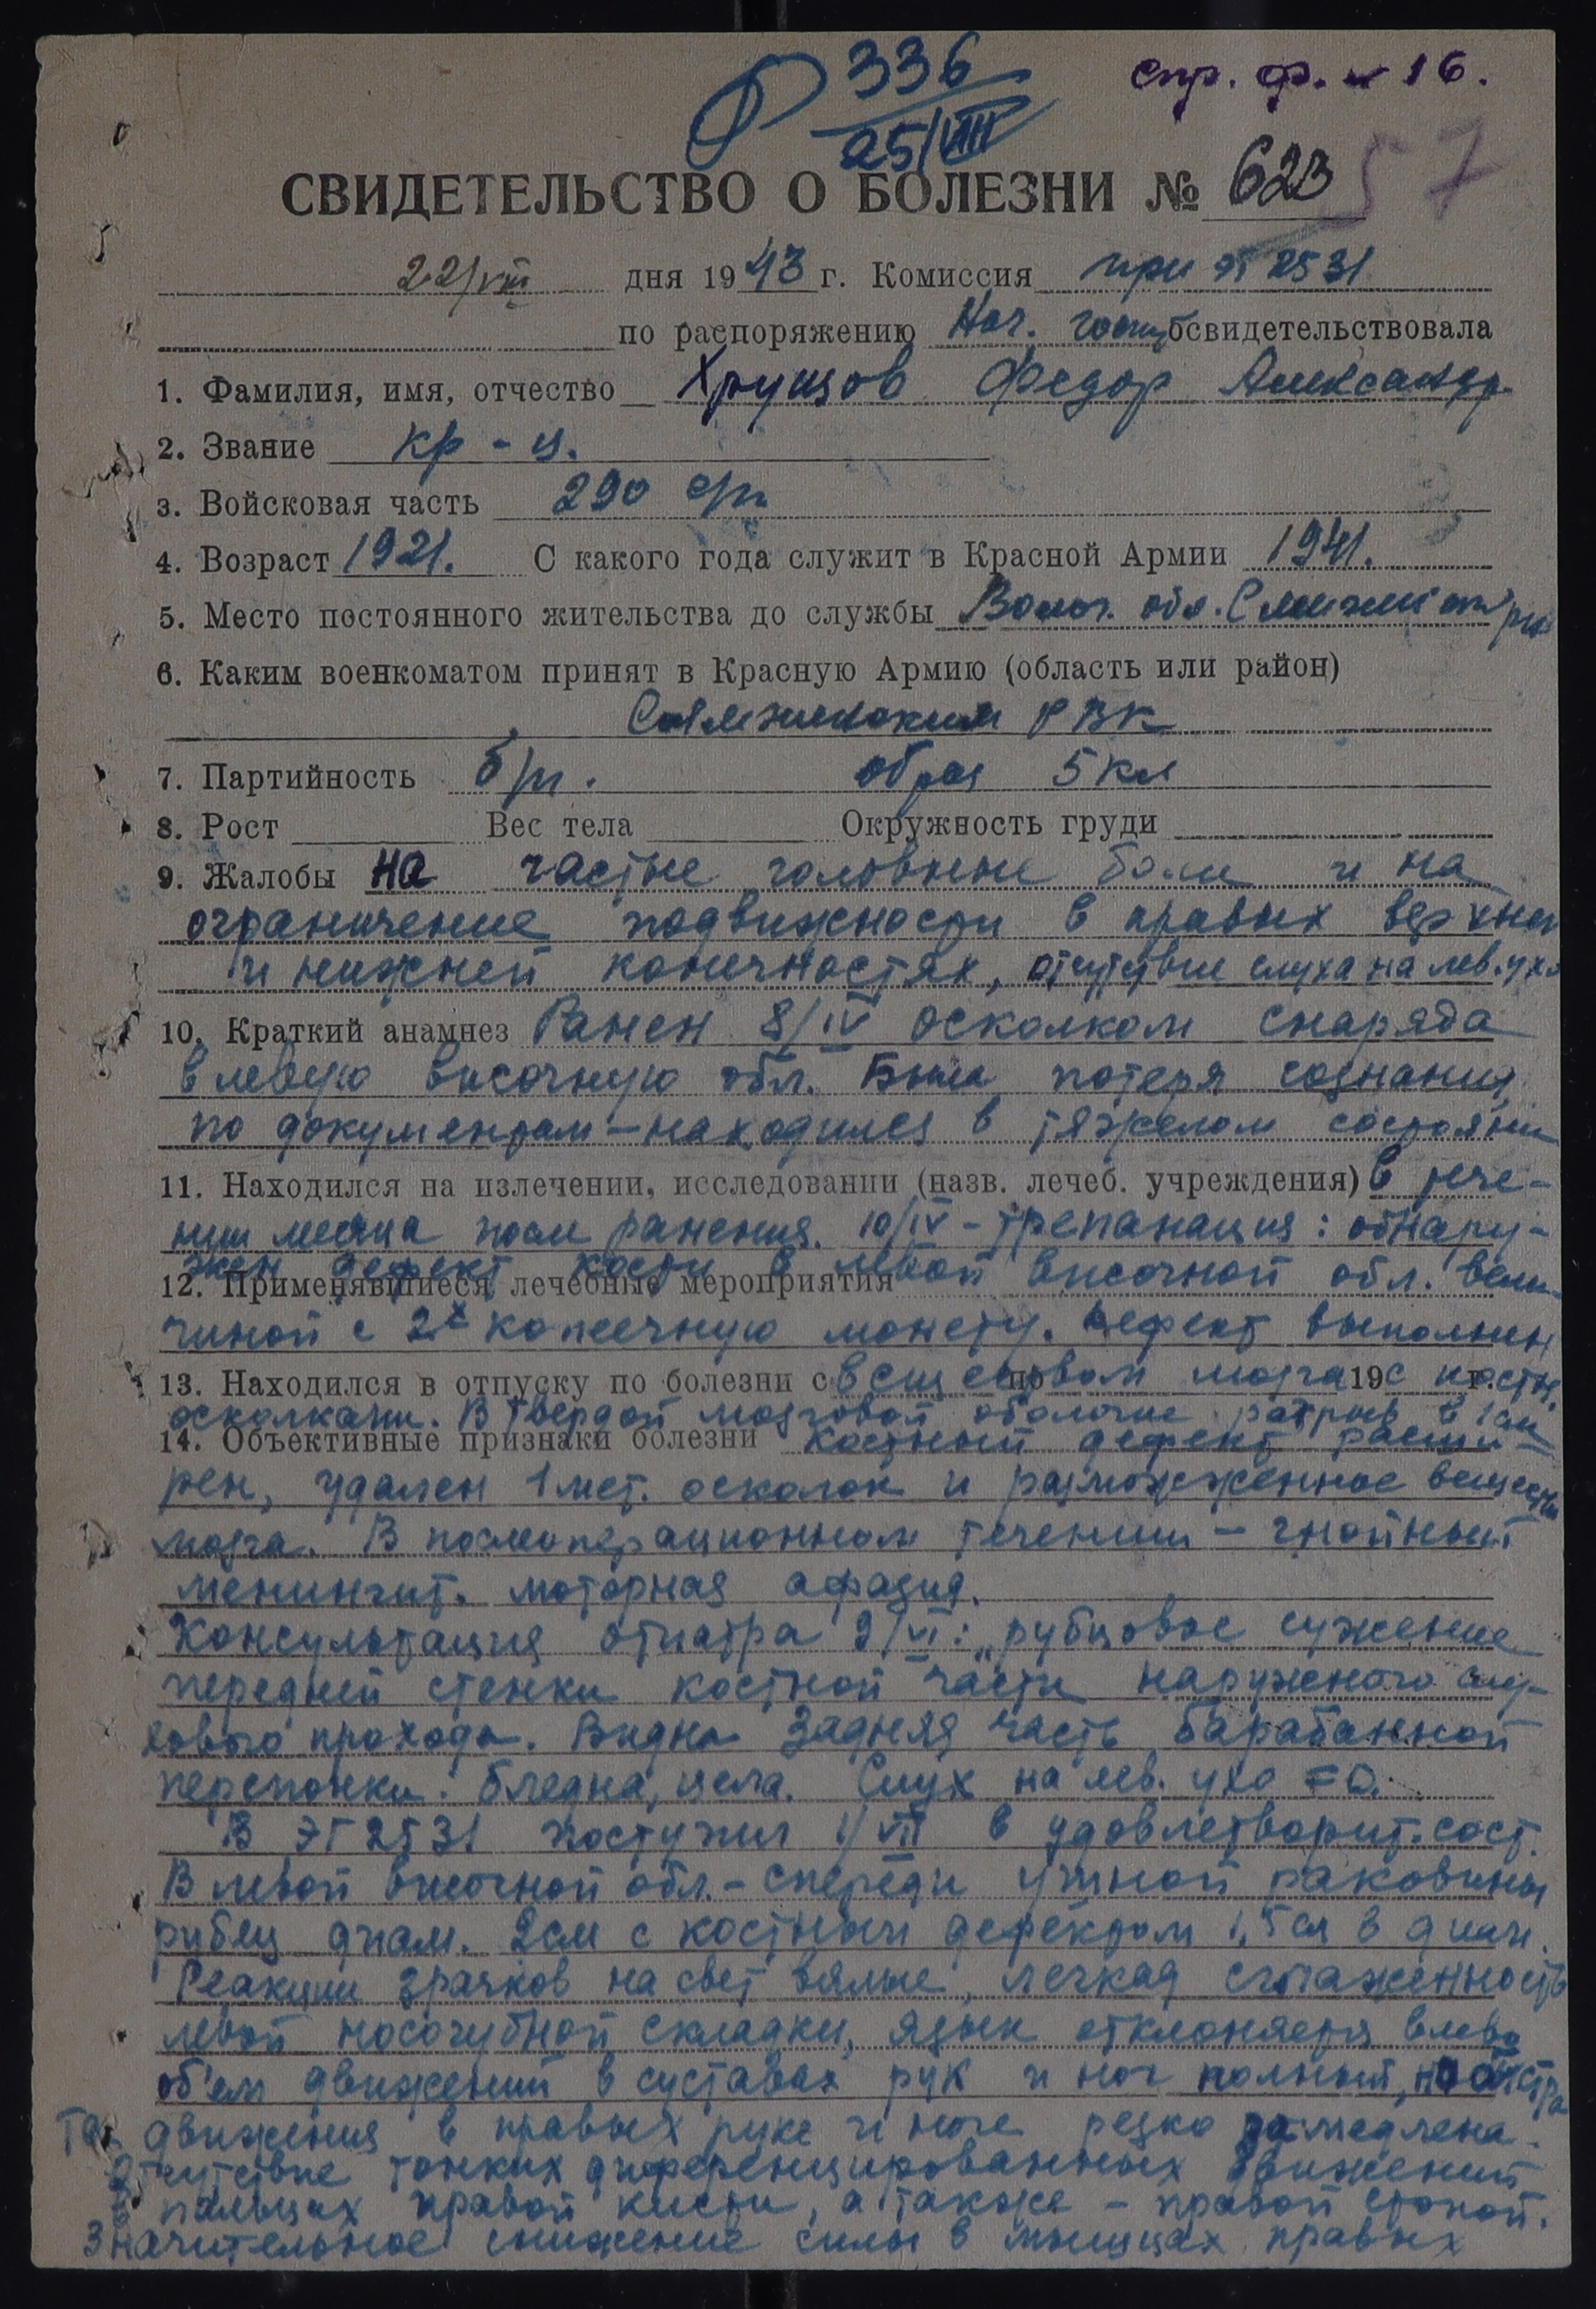 336
25/VIII
спр. ф. 16.
57
СВИДЕТЕЛЬСТВО О БОЛЕЗНИ № 623
22/VIII дня 1943 г. Комиссия при ЭГ 2531
по распоряжению Нач. госп освидетельствовала
1. Фамилия, имя, отчество Хрущов Федор Александр.
2. Звание кр-ц.
3. Войсковая часть 290 с/п
4. Возраст 1921. С какого года служит в Красной Армии 1941.
5. Место постоянного жительства до службы Волог. обл.
6. Каким военкоматом принят в Красную Армию (область или район)
РВК
7. Партийность б/п. образ 5 кл
8. Рост Вес тела Окружность груди
9. Жалобы на частые головные боли и на
ограничение подвижности в правых верхней
и нижней конечностях, отсутствие слуха на лев. ухо
10. Краткий анамнез Ранен 8/IV осколком снаряда
в левую височную обл. Была потеря сознания,
по документам – находился в тяжелом состоянии
11. Находился на излечении, исследовании (назв. лечеб. учреждения) в тече-
нии месяца после ранения. 10/IV – трепанация: обнару-
жен дефект кости в левой височной обл. вели-
12. Применявшиеся лечебные мероприятия
чиной с 2х копеечную монету. Дефект выполнен
13. Находился в отпуску по болезни с по 19 г.
веществом мозга с костн.
осколками. В твердой мозговой оболочке разрыв в 1 см
14. Объективные признаки болезни Костный дефект расши-
рен, удален 1 мет. осколок и размозженное вещество
мозга. В послеоперационном течении – гнойный
менингит. моторная афазия.
Консультация отиатра 9/VI: „рубцовое сужение
передней стенки костной части наружного слу-
хового прохода. Видна задняя часть барабанной
перепонки: бледна, цела. Слух на лев. ухо = 0.
В ЭГ 2531 поступил 1/VII в удовлетворит. сост.
В левой височной обл. – спереди ушной раковины
рубец диам. 2 см с костным дефектом 1,5 см в диам.
Реакции зрачков на свет вялые, легкая сглаженность
левой носогубной складки, язык отклоняется влево
об'ем движений в суставах рук и ног полный, но быстро
та движения в правых руке и ноге резко замедлена.
Отсутствие тонких диференцированных движений
в пальцах правой кисти, а также – правой стопой.
Значительное снижение силы в мышцах правых